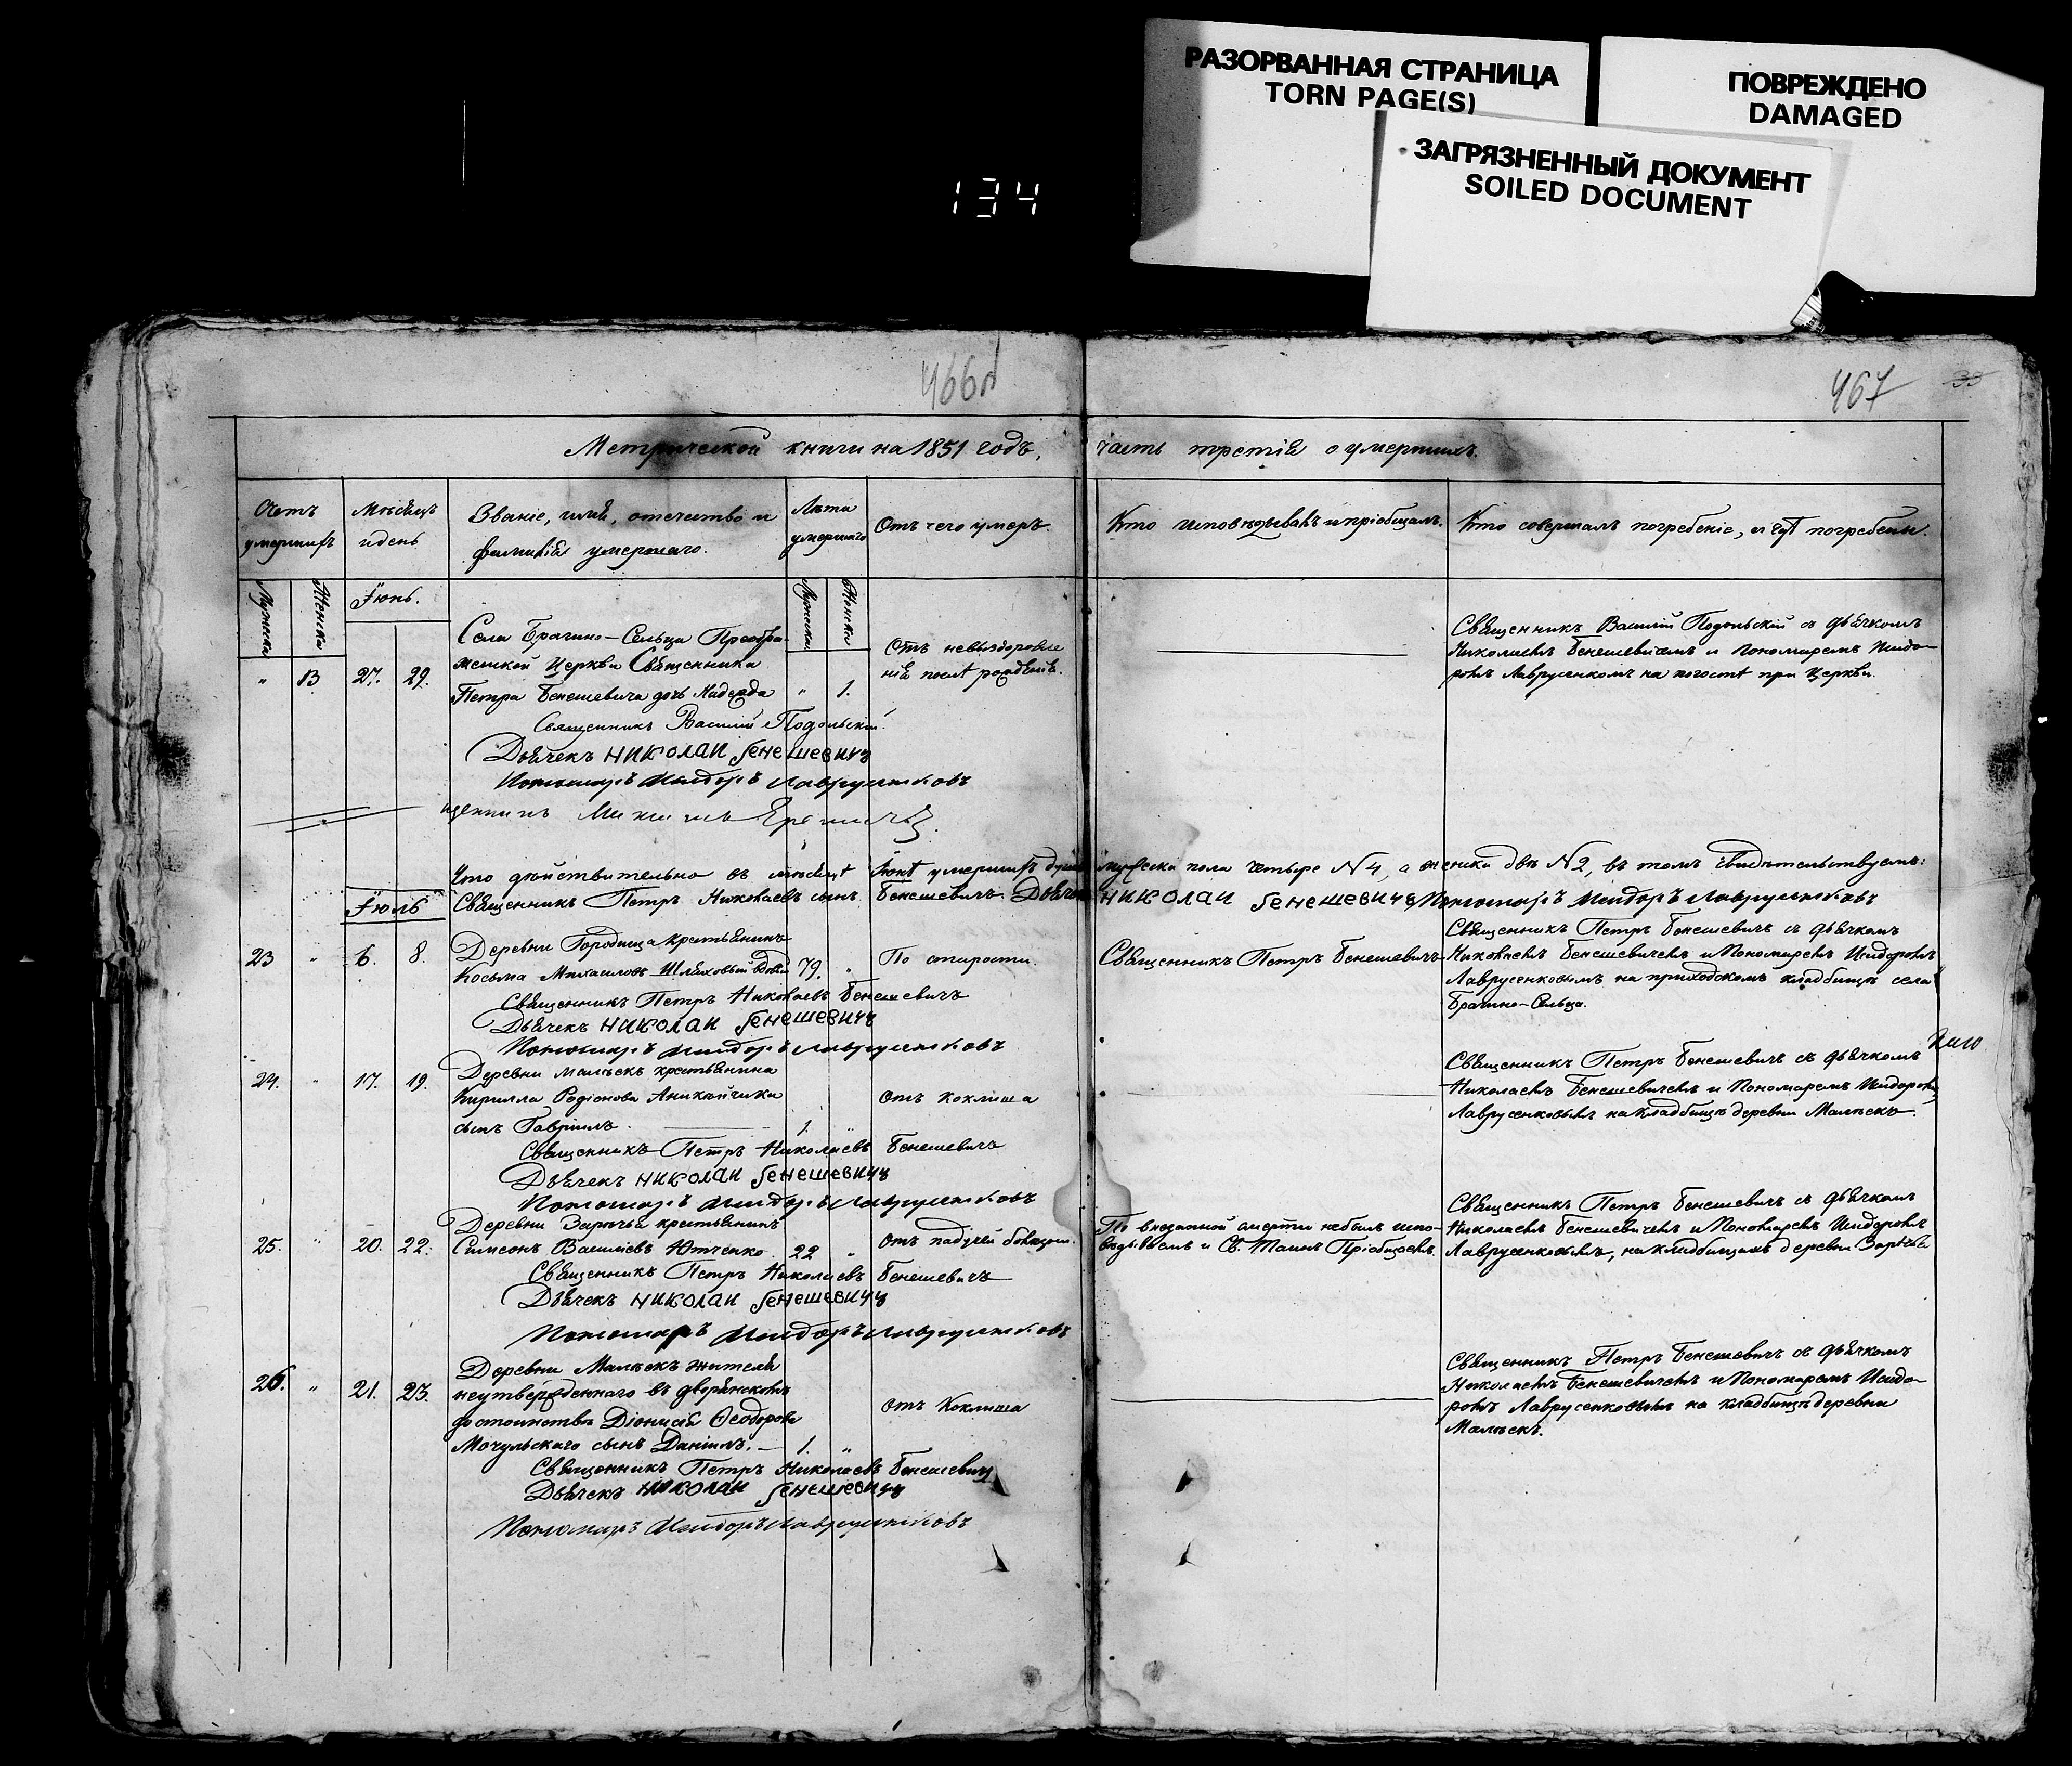 РАЗОРВАННАЯ СТРАНИЦА
TORN PAGE(S)
ПОВРЕЖДЕНО
DAMAGED
ЗАГРЯЗНЕННЫЙ ДОКУМЕНТ
SOILED DOCUMENT
134
466
467
Метрической книги на 1851 годъ, часть третія о умершихъ.
Счетъ умершихъ
Мѣсяцъ и день
Званіе, имя, отечество и фамилія умершаго.
Лѣта умершаго
Отъ чего умеръ.
Кто исповѣдывалъ и пріобщалъ.
Кто совершалъ погребеніе, и гдѣ погребены.
Мужеска
Женска
Іюнь.
Мужеска
Женска
" 13 27. 29.
Села Брагино-Сельца Преобра-
женской Церкви Священника
Петра Бенешевича дочь Надежда " 1.
Отъ невыздоровле
нія послѣ рожденія.
Священникъ Василій Подольскій съ дьячкомъ
Николаемъ Бенешевичемъ и Пономаремъ Исидо-
ромъ Лаврусенкомъ на погостѣ при Церкви.
Священникъ Василій Подольскій.
Дьячекъ НИКОЛАИ Бенешевичъ
Пономаръ Исидоръ Лаврусенковъ
Что дѣйствительно въ мѣсяцѣ Іюнѣ умершихъ душъ мужеска пола четыре №4, а женска двѣ №2, въ томъ свидѣтельствуемъ:
Священникъ Петръ Николаевъ сынъ Бенешевичъ Дьячекъ НИКОЛАИ Бенешевичъ Пономаръ Исидоръ Лаврусенковъ
Іюль
23 " 6. 8.
Деревни Городища крестьянинъ
Косьма Михаиловъ вдовъ 79. "
По старости.
Священникъ Петръ Бенешевичъ
Священникъ Петръ Бенешевичъ съ дьячкомъ
Николаемъ Бенешевичемъ и Пономаремъ Исидоромъ
Лаврусенковымъ на приходскомъ кладбищѣ села
Брагино-Сельца.
Священникъ Петръ Николаевъ Бенешевичъ
Дьячекъ НИКОЛАИ Бенешевичъ
Пономаръ Исидоръ Лаврусенковъ
24. " 17. 19.
Деревни Малѣекъ крестьянина
Кирилла Родіонова Аникѣйчика
сынъ Гавріилъ. 1. "
отъ коклюша
Священникъ Петръ Бенешевичъ съ дьячкомъ
Николаемъ Бенешевичемъ и Пономаремъ Исидоромъ
Лаврусенковымъ на кладбищѣ деревни Малѣекъ.
Священникъ Петръ Николаевъ Бенешевичъ
Дьячекъ НИКОЛАИ Бенешевичъ
Пономаръ Исидоръ Лаврусенковъ
25. " 20. 22.
Деревни Зарѣчья крестьянинъ
Симеонъ Василіевъ Ютченко. 22 "
отъ падучей болѣзни.
По внезапной смерти небылъ испо-
вѣдываемъ и Св. Таинъ Пріобщаемъ.
Священникъ Петръ Бенешевичъ съ дьячкомъ
Николаемъ Бенешевичемъ и Пономаремъ Исидоромъ
Лаврусенковымъ, на кладбищахъ деревни Зарѣчья
Священникъ Петръ Николаевъ Бенешевичъ
Дьячекъ НИКОЛАИ Бенешевичъ
Пономаръ Исидоръ Лаврусенковъ
26. " 21. 23.
Деревни Малѣекъ жителя
неутвержденнаго въ дворянскомъ
достоинствѣ Діонисія Ѳеодорова
Мочульскаго сынъ Даніилъ. 1. "
отъ Коклюша
Священникъ Петръ Бенешевичъ съ дьячкомъ
Николаемъ Бенешевичемъ и Пономаремъ Исидо-
ромъ Лаврусенковымъ на кладбищѣ деревни
Малѣекъ.
Священникъ Петръ Николаевъ Бенешевичъ
Дьячекъ НИКОЛАИ Бенешевичъ
Пономаръ Исидоръ Лаврусенковъ